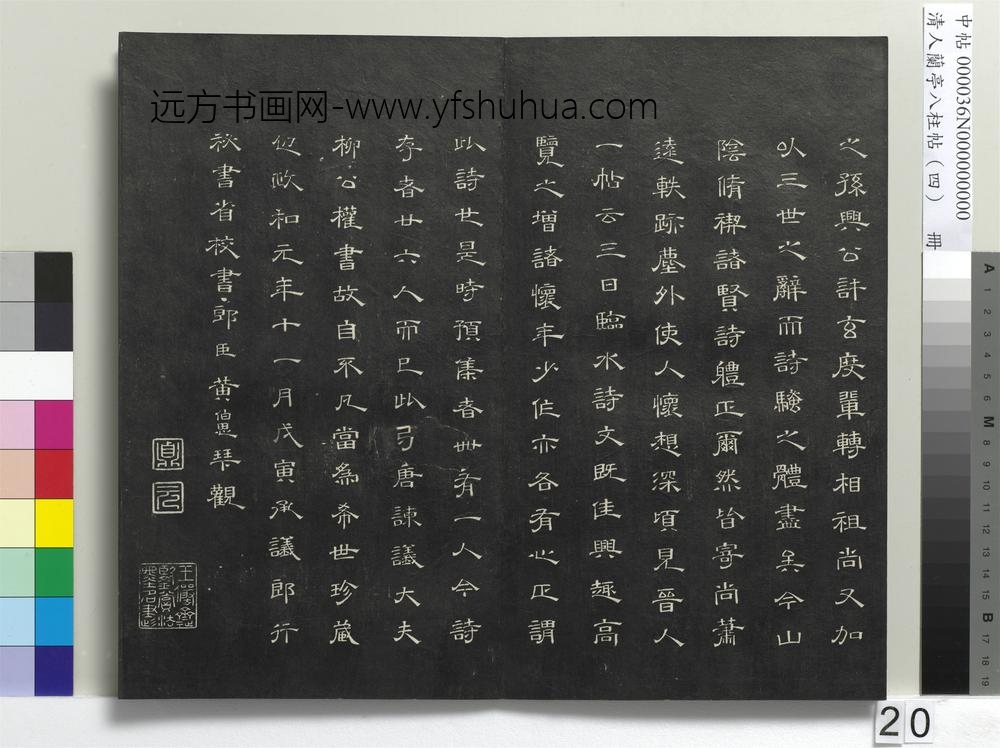 之孫興公許玄度輩轉相祖尚又加
以三世之辭而詩騷之體盡矣今山
陰脩禊諸賢詩體正爾然皆寄尚蕭
遠軼跡塵外使人懷想深頃見晉人
一帖云三日臨水詩文既佳興趣高
覽之增諸懷年少作亦各有心正謂
此詩也是時預集者卌有一人今詩
存者廿六人而已此乃唐諫議大夫
柳公權書故自不凡當為希世珍藏
政和元年十一月戊寅承議郎行
秘書省校書郎臣黃伯思琹觀
远方书画网-www.yfshuhua.com
中帖000036N000000000
清人蘭亭八柱帖（四） 冊
A 1 2 3 4 5 6 M 8 9 10 11 12 13 14 15 B 17 18 19
20